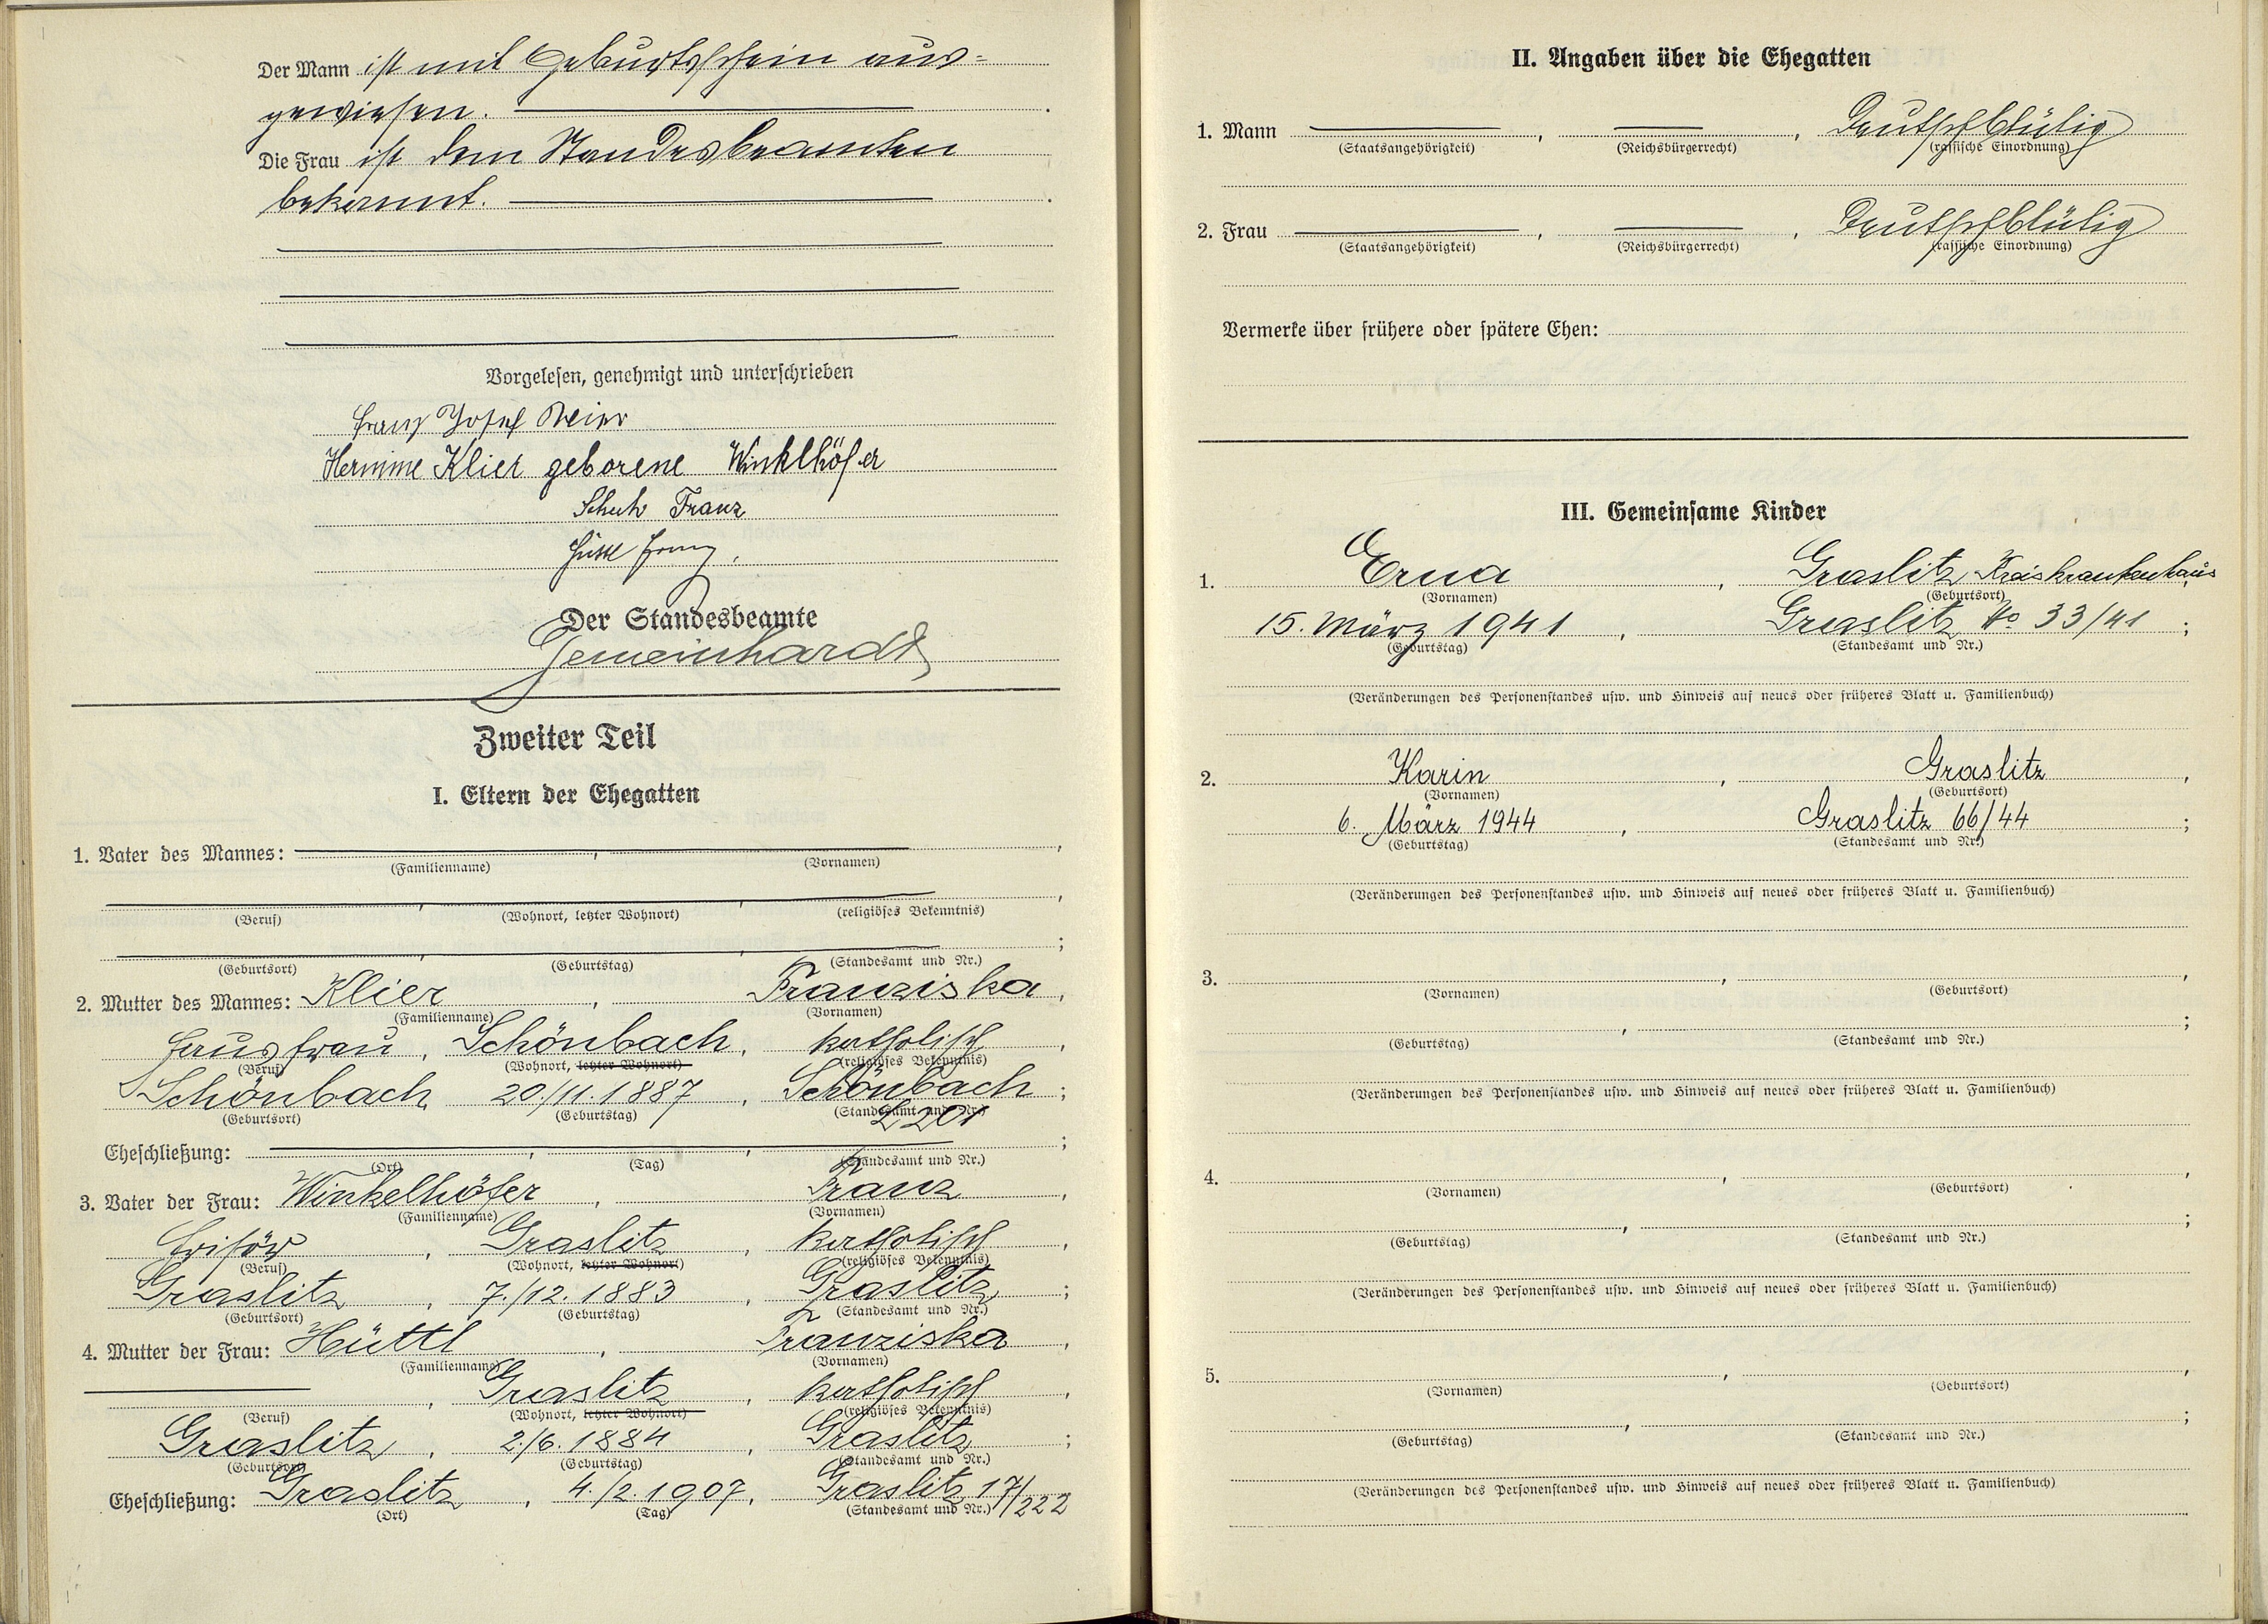 Der Mann ist mit Geburtsschein aus=
gewiesen.
Die Frau ist dem Standesbeamten
bekannt.
Vorgelesen, genehmigt und unterschrieben
Franz Josef
Hermine Klier geborene Winklhöfer
Schuh Franz
Franz
Der Standesbeamte
Gemeinhardt
Zweiter Teil
I. Eltern der Ehegatten
1. Vater des Mannes: , ,
(Familienname) (Vornamen)
, , ,
(Beruf) (Wohnort, letzter Wohnort) (religiöses Bekenntnis)
, , ;
(Geburtsort) (Geburtstag) (Standesamt und Nr.)
2. Mutter des Mannes: Klier , Franziska ,
(Familienname) (Vornamen)
Hausfrau , Schönbach , katholisch ,
(Beruf) (Wohnort, letzter Wohnort) (religiöses Bekenntnis)
Schönbach , 20./11.1887 , Schönbach ;
(Geburtsort) (Geburtstag) (Standesamt und Nr.)
Eheschließung: , , ;
(Ort) (Tag) (Standesamt und Nr.)
3. Vater der Frau: Winkelhöfer , Franz ,
(Familienname) (Vornamen)
Frisör , Graslitz , katholisch ,
(Beruf) (Wohnort, letzter Wohnort) (religiöses Bekenntnis)
Graslitz , 7./12.1883 , Graslitz ;
(Geburtsort) (Geburtstag) (Standesamt und Nr.)
4. Mutter der Frau: Hüttl , Franziska ,
(Familienname) (Vornamen)
, Graslitz , katholisch ,
(Beruf) (Wohnort, letzter Wohnort) (religiöses Bekenntnis)
Graslitz , 2./6.1884 , Graslitz ;
(Geburtsort) (Geburtstag) (Standesamt und Nr.)
Eheschließung: Graslitz , 4./2.1907 , Graslitz 17/222
(Ort) (Tag) (Standesamt und Nr.)
II. Angaben über die Ehegatten
1. Mann , , Deutschblütig
(Staatsangehörigkeit) (Reichsbürgerrecht) (rassische Einordnung)
2. Frau , , Deutschblütig
(Staatsangehörigkeit) (Reichsbürgerrecht) (rassische Einordnung)
Vermerke über frühere oder spätere Ehen:
III. Gemeinsame Kinder
1. Erna , Graslitz Kreiskrankenhaus,
(Vornamen) (Geburtsort)
15. März 1941 , Graslitz No 33/41 ;
(Geburtstag) (Standesamt und Nr.)
(Veränderungen des Personenstandes usw. und Hinweis auf neues oder früheres Blatt u. Familienbuch)
2. Karin , Graslitz ,
(Vornamen) (Geburtsort)
6. März 1944 , Graslitz 66/44 ;
(Geburtstag) (Standesamt und Nr.)
(Veränderungen des Personenstandes usw. und Hinweis auf neues oder früheres Blatt u. Familienbuch)
3. , ,
(Vornamen) (Geburtsort)
, ;
(Geburtstag) (Standesamt und Nr.)
(Veränderungen des Personenstandes usw. und Hinweis auf neues oder früheres Blatt u. Familienbuch)
4. , ,
(Vornamen) (Geburtsort)
, ;
(Geburtstag) (Standesamt und Nr.)
(Veränderungen des Personenstandes usw. und Hinweis auf neues oder früheres Blatt u. Familienbuch)
5. , ,
(Vornamen) (Geburtsort)
, ;
(Geburtstag) (Standesamt und Nr.)
(Veränderungen des Personenstandes usw. und Hinweis auf neues oder früheres Blatt u. Familienbuch)